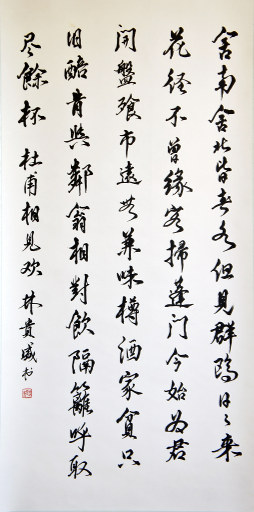 舍南舍北皆春水但見群鷗日々来
花径不曾缘客掃蓬门今始为君
開盤飱市遠无兼味樽酒家貧只
旧醅肯與鄰翁相對飲隔籬呼取
尽餘杯 杜甫相見欢 林貴盛书